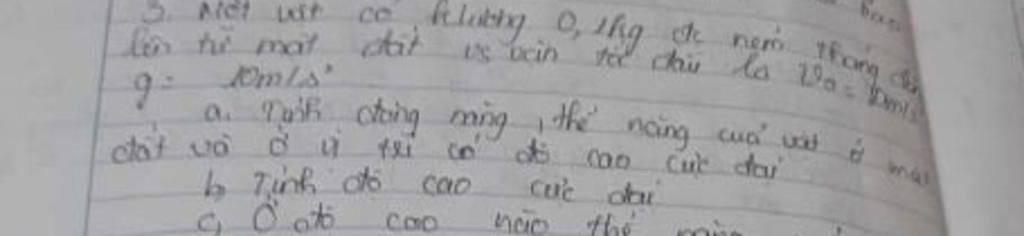 3. Một vật có k/lượng 0,1kg đc ném thẳng đứ
lên từ mặt đất vs vận tốc đầu là v0 = 10m/s
g = 10m/s²
a. Tính động năng, thế năng của vật ở mặt
đất và ở vị trí có độ cao cực đại
b, Tính độ cao cực đại
c, Ở độ cao nào thế năng